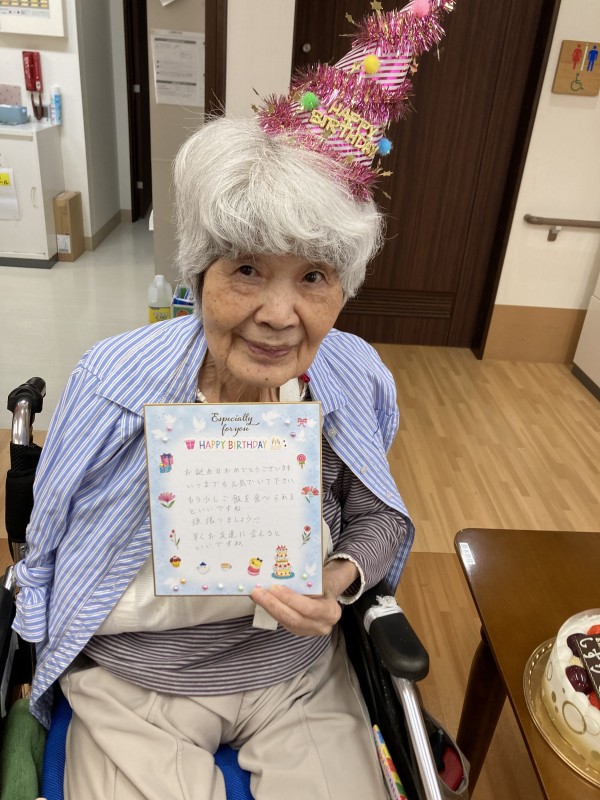 HAPPY
BIRTHDAY
Especially
for you
HAPPY BIRTHDAY
お誕生日おめでとうございます
いつまでも元気でいて下さい
もう少しご飯を食べられると
いいですね
頑張りましょう!!
早くお友達に会えると
いいですね